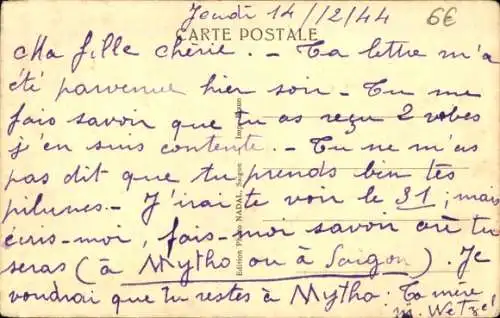 Jeudi 14/12/44
6€
CARTE POSTALE
Ma fille chérie. - Ta lettre m'a
été parvenue hier soir - Tu me
fais savoir que tu as reçu 2 robes
j'en suis contente. - Tu ne m'as
pas dit que tu prends bien tes
pilunes. - J'irai te voir le 31; mais
écris-moi, fais-moi savoir où tu
seras (à Mytho ou à Saïgon). Je
voudrai que tu restes à Mytho. Ta mère
M. Wetzel
Edition Photo NADAL, Saigon